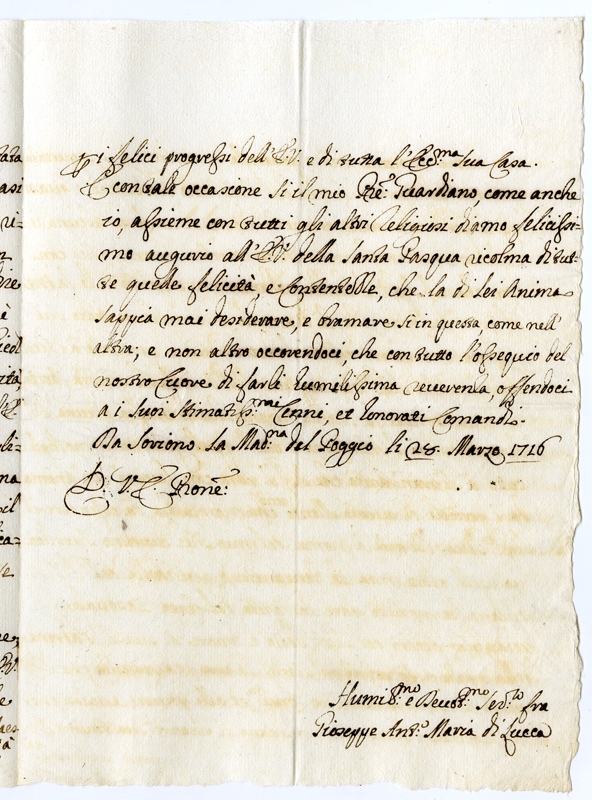 i felici progressi dell' P.V. e di tutta l'Ecc.ma Sua Casa.
Con tale occasione sì il mio Pre: Guardiano, come anche
io, assieme con tutti gli altri Religiosi diamo felicissi-
mo augurio all' P.V. della Santa Pasqua ricolma di tut-
te quelle felicità e Contentezze, che la di Lei Anima
sappia mai desiderare, e bramare sì in questa, come nell'
altra; e non altro occorendoci, che con tutto l'ossequio del
nostro Cuore di farle humilissima reverenza, offrendoci
a i suoi stimatiss.mi Cenni, et honorati Comandi.
Da Soviono. La Mad.na del Poggio li 28. Marzo 1716
D. V. E. Prone:
Humil.mo e Devot.mo Ser.to fra
Gioseppe Ant.o Maria di Lucca